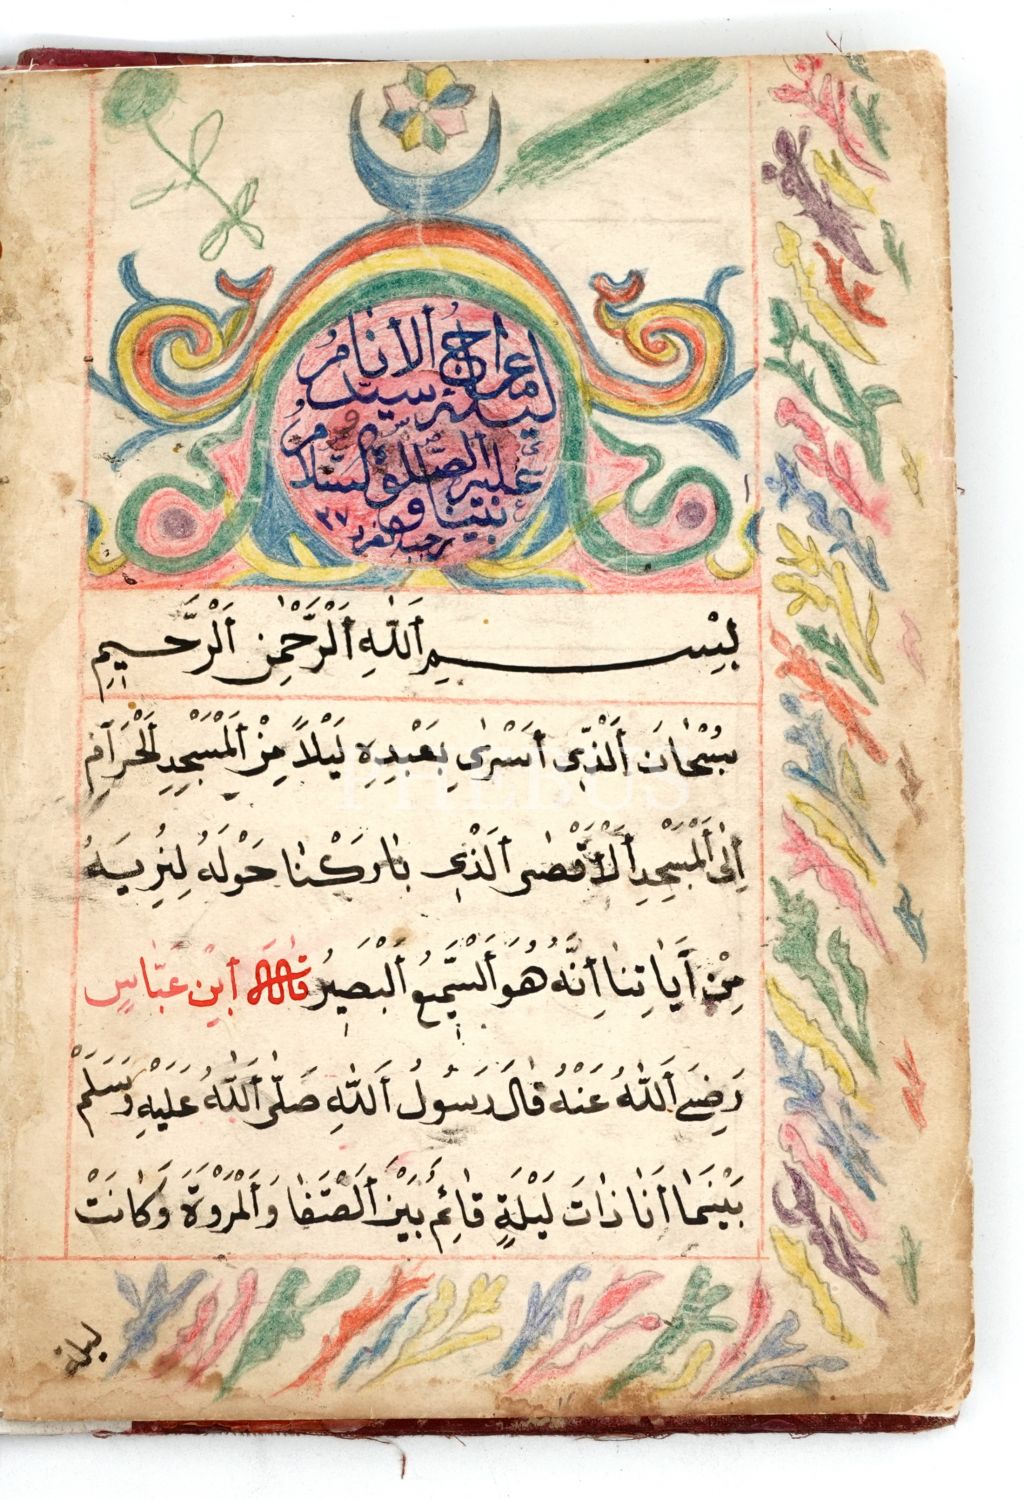 ليلة معراج سيد الأنام
عليه الصلوة والسلام
نبينا
٢٧
بِسْمِ اَللّٰهِ اَلْرَّحْمٰنِ اَلْرَّحِيمِ
سُبْحَانَ اَلَّذِي أَسْرٰي بِعَبْدِهِ لَيْلاً مِنْ اَلْمَسْجِدِ الْحَرَامِ
اِلٰي اَلْمَسْجِدِ اَلْأَقْصٰى اَلَذِي بَارَكْنَا حَوْلَهُ لِنُرِيَهُ
مِنْ آيَاتِنَا اِنَّهُ هُوَ اَلسَّمِيعُ اَلْبَصِيرُ قَالَ اَبْن عَبَّاسٍ
رَضِيَ اَللّٰهُ عَنْهُ قَالَ رَسُولُ اَللّٰهِ صَلّٰى اَللّٰهُ عَلَيْهِ وَسَلَمْ
بَيْنَمَا اَنَا ذَاتَ لَيْلَةٍ قَائِمٌ بَيْنَ اَلْصَّفَا وَاَلْمَرْوَةَ وَكَانَتْ
PHEBUS